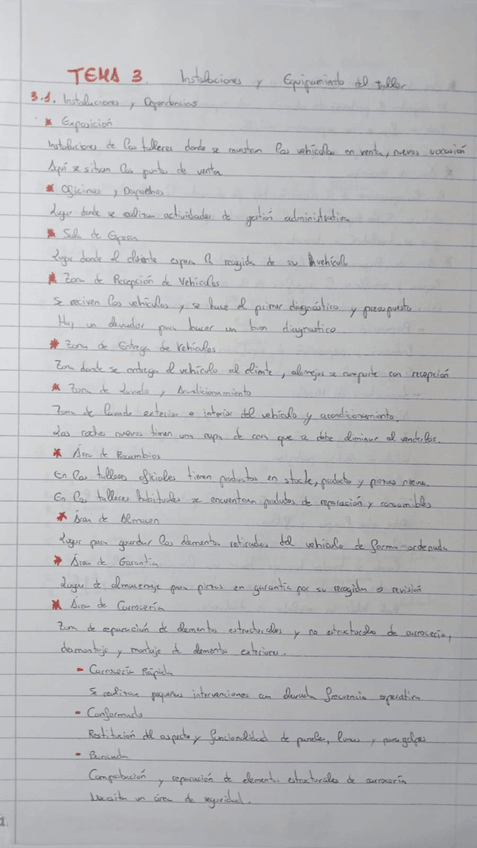 TEMA 3 Instalaciones y Equipamiento del taller
3.1. Instalaciones y Dependencias
* Exposición
Instalaciones de los talleres donde se muestran los vehículos en venta, nuevos y ocasión
Aquí se sitúan los puntos de venta
* Oficinas y Despachos
Lugar donde se realizan actividades de gestión administrativa
* Sala de Espera
Lugar donde el cliente espera la recogida de su vehículo
* Zona de Recepción de Vehículos
Se reciven los vehículos, y se hace el primer diagnóstico y presupuesto
Hay un elevador para hacer un buen diagnostico
* Zona de Entrega de Vehículos
Zona donde se entrega el vehículo al cliente, se comparte con recepción
* Zona de Lavado y Acondicionamiento
Zona de lavado exterior e interior del vehículo y acondicionamiento.
Los coches nuevos tienen una capa de cera que se debe eliminar al venderlos.
* Área de Recambios
En los talleres oficiales tienen productos en stock, producto y piezas nuevas.
En los talleres habituales se encuentran productos de reparación y consumibles
* Área de Almacen
Lugar para guardar los elementos retirados del vehículo de forma ordenada
* Área de Garantía
Lugar de almacenaje para piezas en garantía por su recogida o revisión
* Área de Carrocería
Zona de reparación de elementos estructurales y no estructurales de carrocería,
desmontaje y montaje de elementos exteriores.
- Carrocería Rápida
Se realizan pequeñas intervenciones con elevada frecuencia operativa
- Conformado
Restitución del aspecto y funcionalidad de paneles, lunas y paragolpes
- Bancada
Comprobación y reparación de elementos estructurales de carrocería
Necesita un área de seguridad.
1